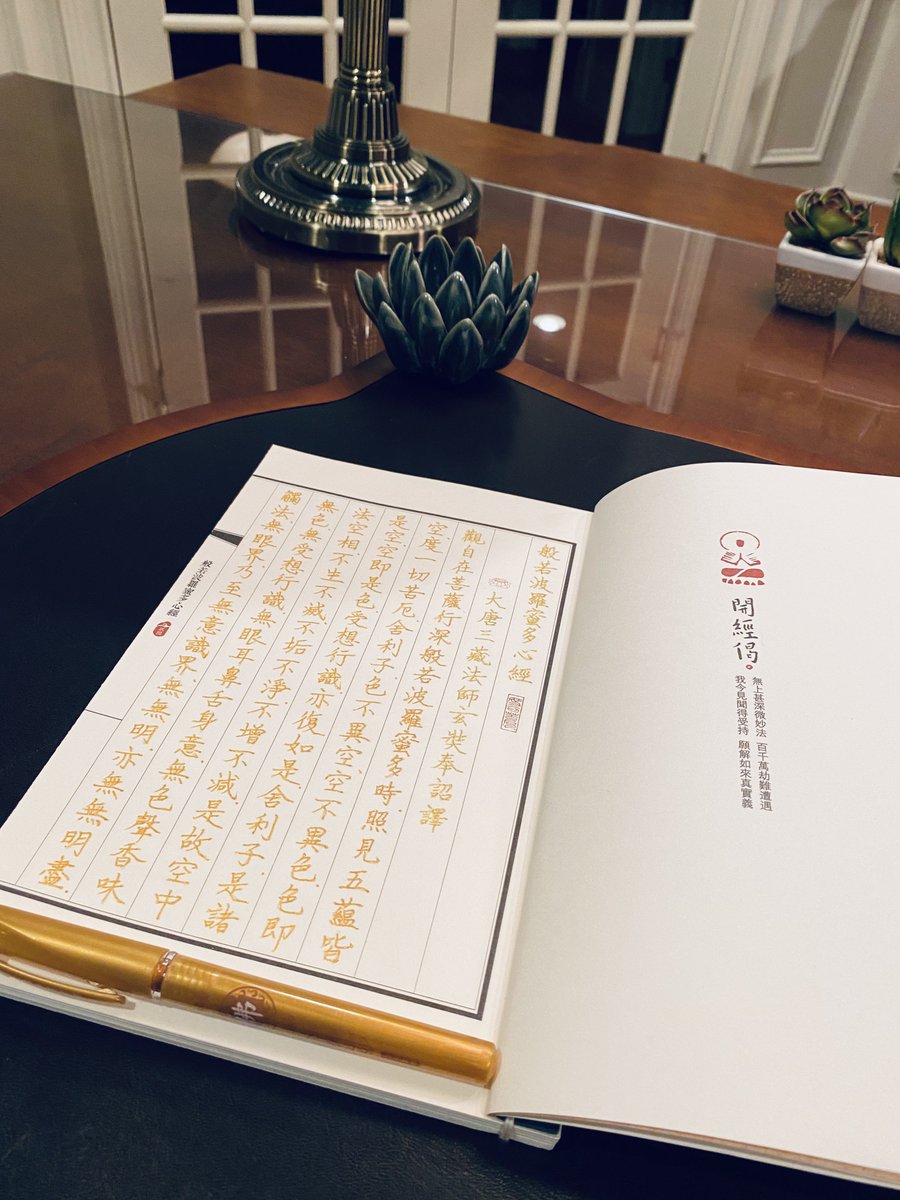 開經偈
無上甚深微妙法 百千萬劫難遭遇
我今見聞得受持 願解如來真實義
般若波羅蜜多心經
大唐三藏法師玄奘奉詔譯
觀自在菩薩.行深般若波羅蜜多時.照見五蘊皆
空.度一切苦厄.舍利子.色不異空.空不異色.色即
是空.空即是色.受想行識.亦復如是.舍利子.是諸
法空相.不生不滅.不垢不淨.不增不減.是故空中
無色.無受想行識.無眼耳鼻舌身意.無色聲香味
觸法.無眼界.乃至無意識界.無無明.亦無無明盡.
般若波羅蜜多心經